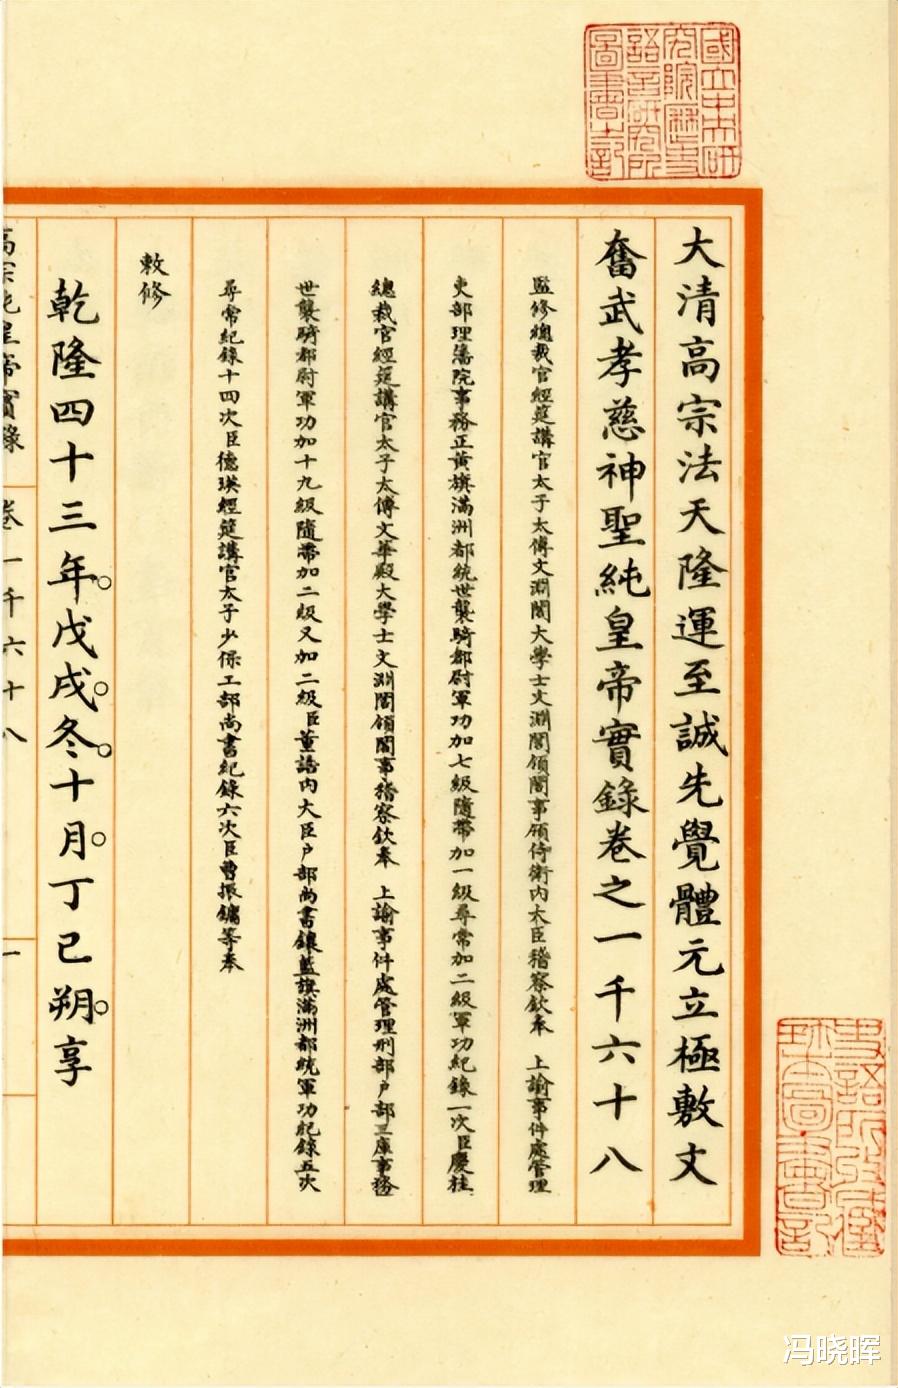 國立中央研
究院歷史
語言研究所
圖書之記
大清高宗法天隆運至誠先覺體元立極敷文
奮武孝慈神聖純皇帝實錄卷之一千六十八
監修總裁官經筵講官太子太傅文淵閣大學士文淵閣領閣事領侍衛內大臣稽察欽奉 上諭事件處管理
吏部理藩院事務正黃旗滿洲都統世襲騎都尉軍功加七級隨帶加一級尋常加二級軍功紀錄一次臣慶桂
總裁官經筵講官太子太傅文華殿大學士文淵閣領閣事稽察欽奉 上諭事件處管理刑部戶部三庫事務
世襲騎都尉軍功加十九級隨帶加二級又加二級臣董誥內大臣戶部尚書鑲藍旗滿洲都統軍功紀錄五次
尋常紀錄十四次臣德瑛經筵講官太子少保工部尚書紀錄六次臣曹振鏞等奉
敕修
乾隆四十三年。戊戌。冬。十月。丁巳朔。享
高宗純皇帝實錄 卷一千六十八 一
冯晓晖